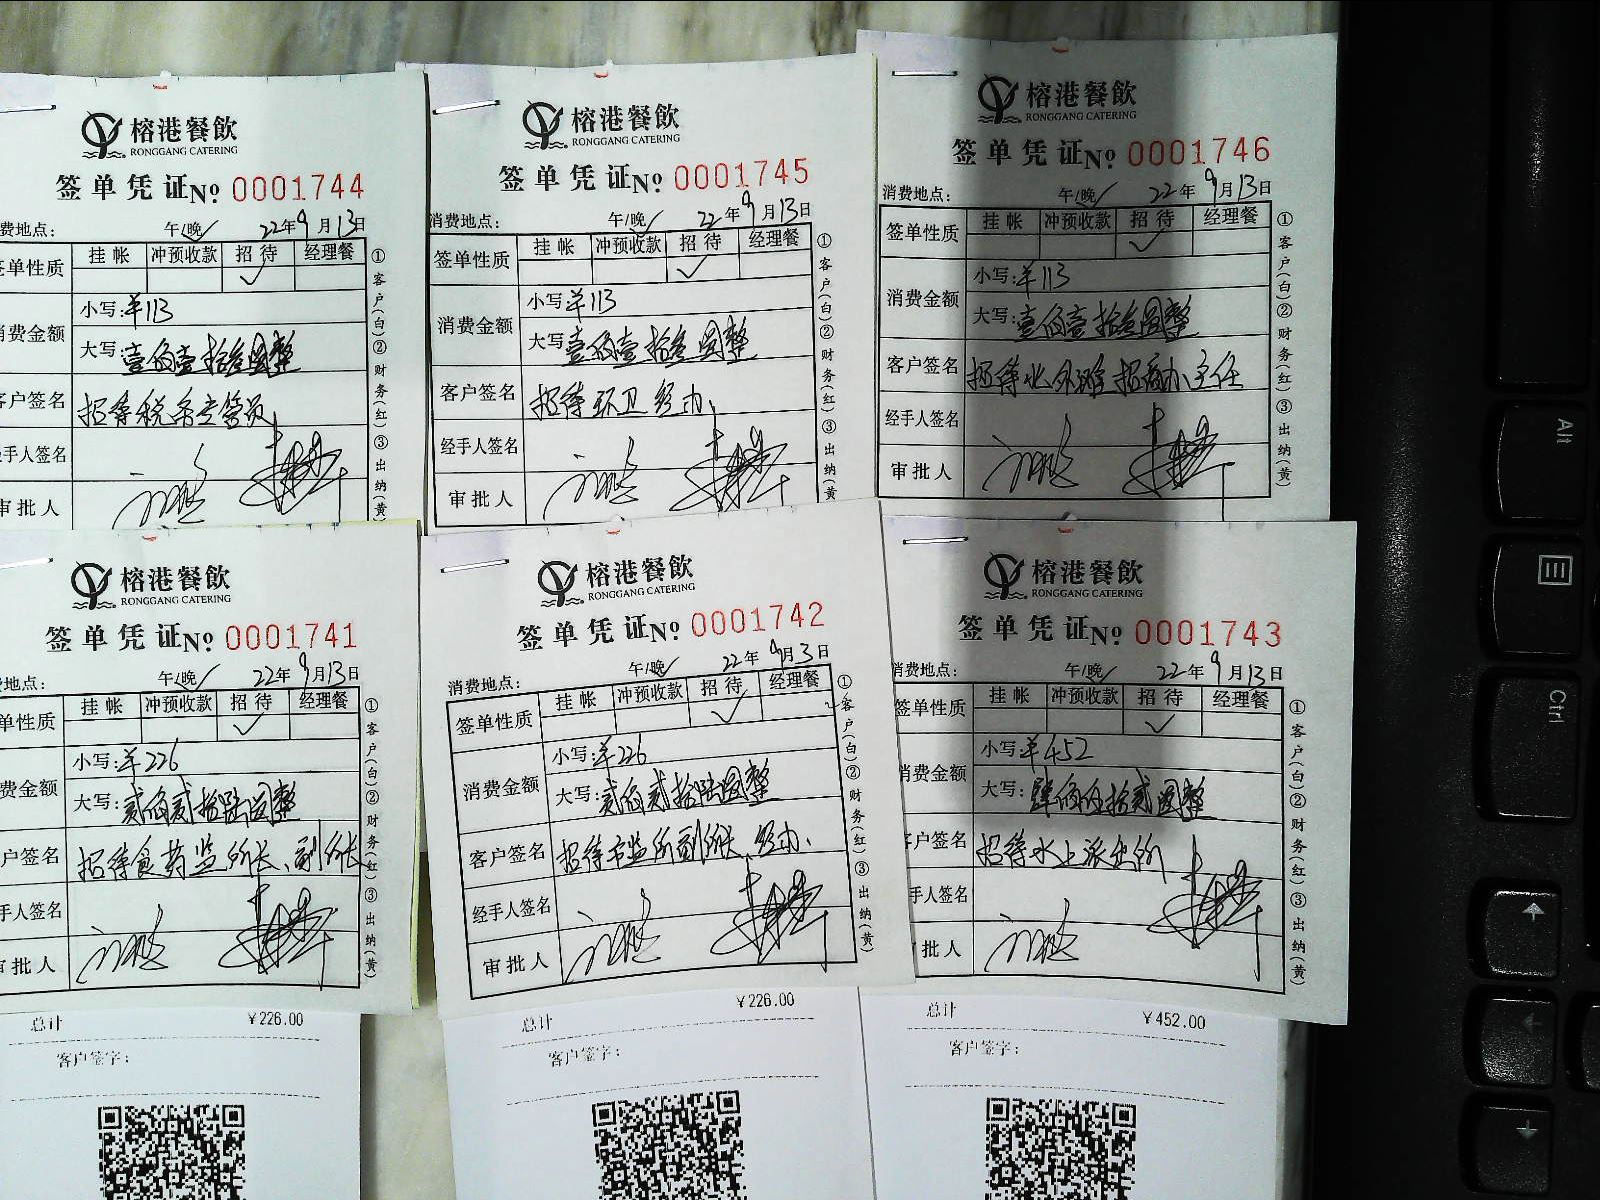 榕港餐飲
RONGGANG CATERING
签单凭证№ 0001744
费地点： 午/晚✓ 22年9月13日
签单性质 挂帐 冲预收款 招待 经理餐
✓
消费金额 小写：¥113
大写：壹佰壹拾叁圆整
客户签名 招待税务专管员
经手人签名
审批人
①客户(白)②财务(红)③出纳(黄)
榕港餐飲
RONGGANG CATERING
签单凭证№ 0001745
消费地点： 午/晚✓ 22年9月13日
签单性质 挂帐 冲预收款 招待 经理餐
✓
消费金额 小写：¥113
大写：壹佰壹拾叁圆整
客户签名 招待环卫经办
经手人签名
审批人
①客户(白)②财务(红)③出纳(黄)
榕港餐飲
RONGGANG CATERING
签单凭证№ 0001746
消费地点： 午/晚✓ 22年9月13日
签单性质 挂帐 冲预收款 招待 经理餐
✓
消费金额 小写：¥113
大写：壹佰壹拾叁圆整
客户签名 招待北外滩招商办主任
经手人签名
审批人
①客户(白)②财务(红)③出纳(黄)
榕港餐飲
RONGGANG CATERING
签单凭证№ 0001741
费地点： 午/晚✓ 22年9月13日
单性质 挂帐 冲预收款 招待 经理餐
✓
费金额 小写：¥226
大写：贰佰贰拾陆圆整
户签名 招待食药监所长、副所长
手人签名
审批人
①客户(白)②财务(红)③出纳(黄)
总计 ¥226.00
客户签字：
榕港餐飲
RONGGANG CATERING
签单凭证№ 0001742
消费地点： 午/晚✓ 22年9月3日
签单性质 挂帐 冲预收款 招待 经理餐
✓
消费金额 小写：¥226
大写：贰佰贰拾陆圆整
客户签名 招待市监所副所长、经办、
经手人签名
审批人
①客户(白)②财务(红)③出纳(黄)
总计 ¥226.00
客户签字：
榕港餐飲
RONGGANG CATERING
签单凭证№ 0001743
消费地点： 午/晚✓ 22年9月13日
签单性质 挂帐 冲预收款 招待 经理餐
✓
消费金额 小写：¥452
大写：肆佰伍拾贰圆整
客户签名 招待水上派出所
手人签名
审批人
①客户(白)②财务(红)③出纳(黄)
总计 ¥452.00
客户签字：
Alt
Ctrl